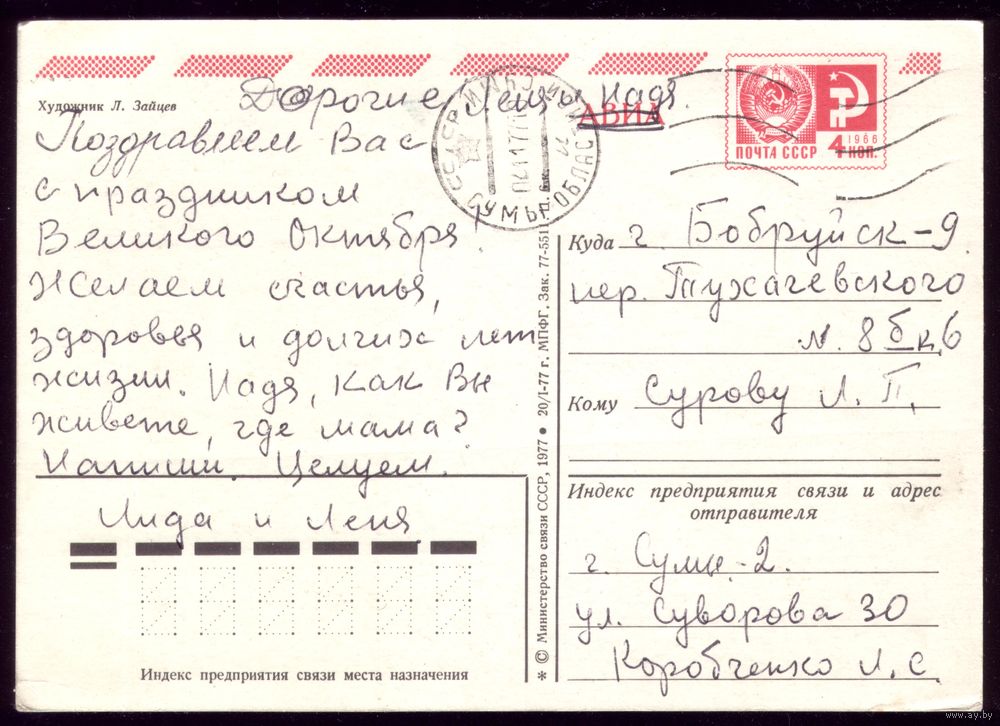 Художник Л. Зайцев
Дорогие Леня и Надя.
АВИА
Поздравляем Вас
с праздником
Великого Октября!
Желаем счастья,
здоровья и долгих лет
жизни. Надя, как Вы
живете, где мама?
Напиши. Целуем.
Лида и Леня
Индекс предприятия связи места назначения
СССР
СУМЫ
ОБЛАСТ
* © Министерство связи СССР, 1977 • 20/I-77 г. МПФГ. Зак. 77-5511
ПОЧТА СССР
1966
4 КОП.
Куда г. Бобруйск-9
пер. Тухачевского
8 б к 6
Кому Сурову Л. П.
Индекс предприятия связи и адрес
отправителя
г. Сумы-2.
ул. Суворова 30
Коробченко Л. С
www.ay.by